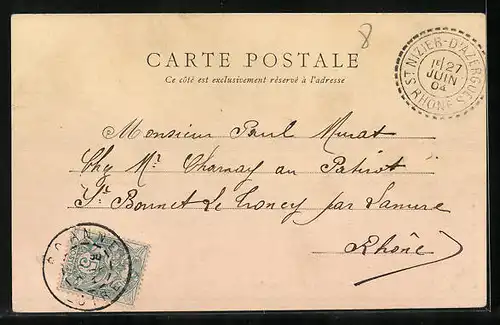 8
CARTE POSTALE
Ce côté est exclusivement réservé à l'adresse
ST NIZIER-D'AZERGUES
27
JUIN
04
RHÔNE
Monsieur Paul Murat
Chez Mr. Charnay au Patirot
St. Bonnet le Troncy par Lamure
Rhône
ROANNE
LOIRE